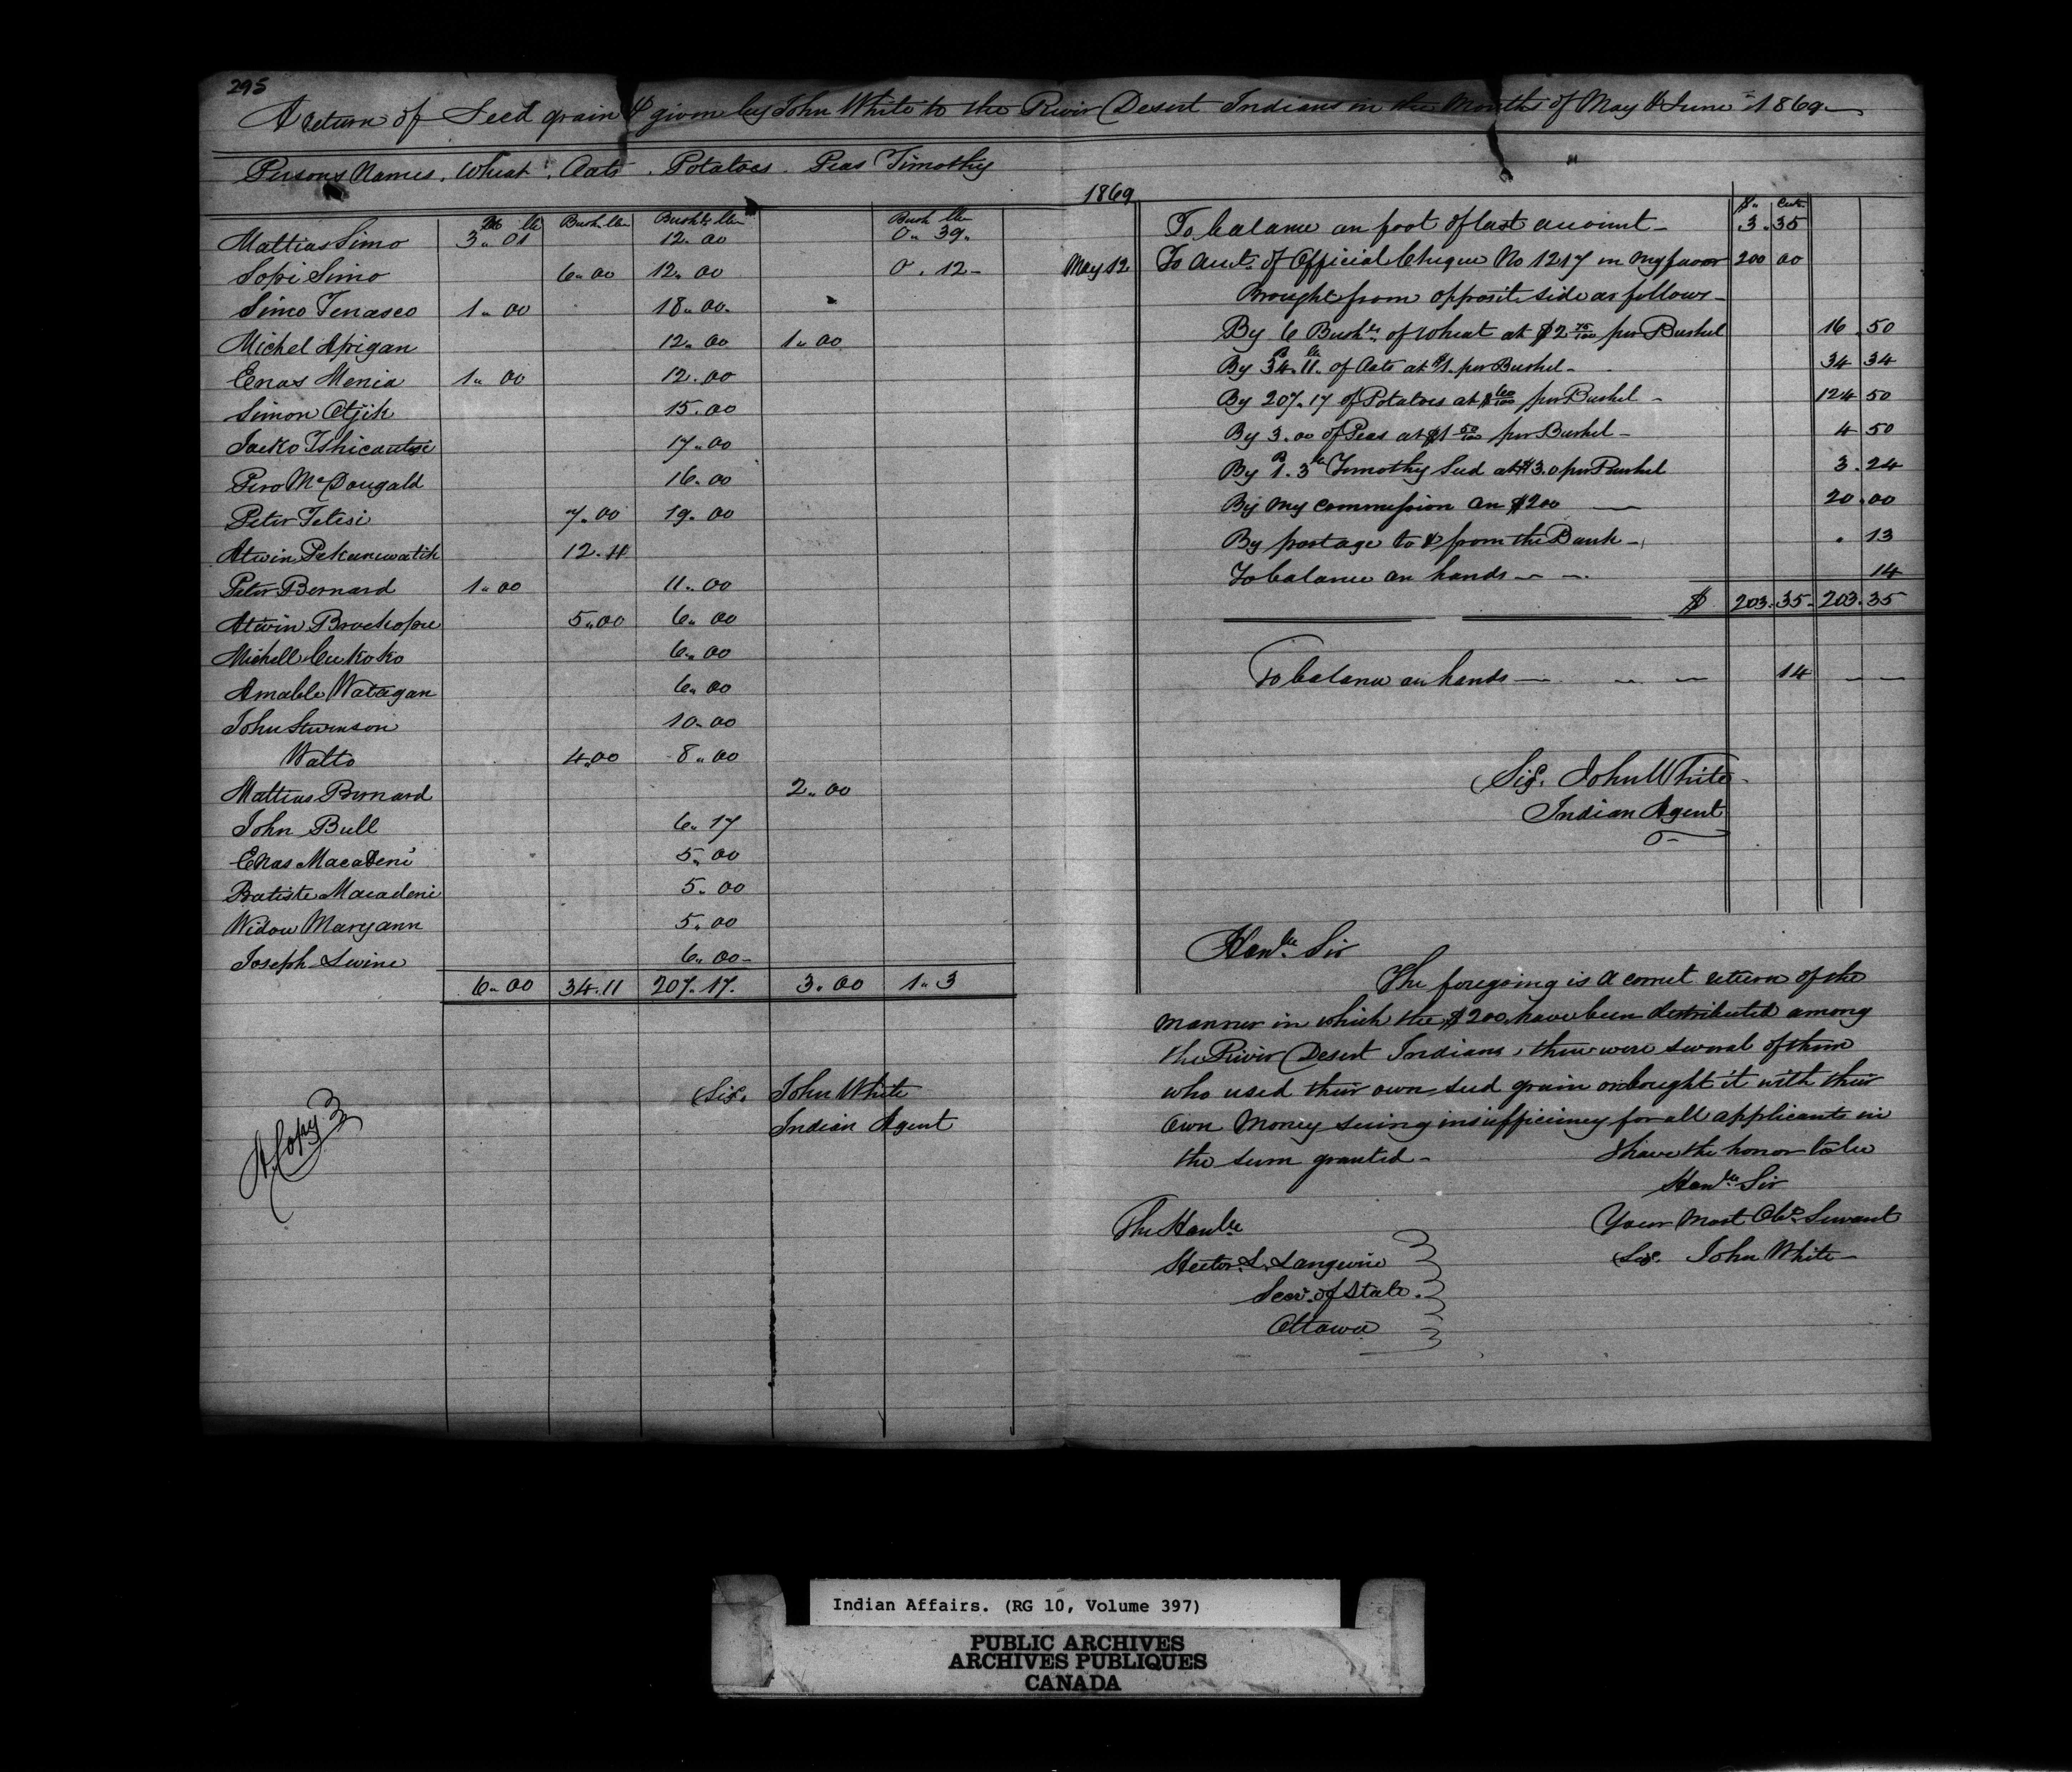 295
A return of Seed grain & given by John White to the River Desert Indians in the Months of May & June 1869
Persons Names. Wheat. Oats. Potatoes. Peas Timothy
Bush lbs Bush lbs Bush lbs
Mattias Simo 3.. 01 12.. 00 0.. 39.
Sopi Simo 6.. 00 12.. 00 0. 12
Simo Tenasco 1.. 00 18.. 00.
Michel Apigan 12.. 00 1.. 00
Enas Menia 1.. 00 12.. 00
Simon Otjik 15.. 00
Jacko 17.. 00
Piro McDougald 16.. 00
Peter Tetesi 7.. 00 19.. 00
Atwin 12.. 11
Peter Bernard 1.. 00 11.. 00
Atwin 5.. 00 6.. 00
Michell Cukoko 6.. 00
Amable Watagan 6.. 00
John Stevenson 10.. 00
Watto 4.. 00 8.. 00
Mattias Bernard 2.. 00
John Bull 6.. 17
Enas Macadeni 5.. 00
Batiste Macadeni 5.. 00
Widow Maryann 5.. 00
Joseph 6.. 00
6.. 00 34.. 11 207.. 17. 3.. 00 1.. 3
Sig. John White
Indian Agent
A Copy
1869
$ Cents
To balance on foot of last account 3. 35
May 12 To amt. of Official Cheque No 1217 in my favor 200 00
Brought from opposite side as follows
By 6 Bushls. of Wheat at $2 75/100 per Bushel 16. 50
By 34 B. 11 lbs of Oats at $1. per Bushel 34 34
By 207.. 17 of Potatoes at $60/100 per Bushel 124 50
By 3.. 00 of Peas at $1 50/100 per Bushel 4 50
By 1 B. 3 lbs Timothy Seed at $3.0 per Bushel 3. 24
By my commission on $200 20. 00
By postage to & from the Bank . 13
To balance on hands 14
$ 203. 35. 203. 35
To balance on hands 14
Sig. John White
Indian Agent
Honble Sir
The foregoing is a correct return of the
manner in which the $200 have been distributed among
the River Desert Indians, there were several of them
who used their own seed grain or bought it with their
own Money seeing insufficiency for all applicants in
the sum granted
I have the honor to be
Honble Sir
Your Most Obt. Servant
Sig. John White
The Honble
Hector L. Langevine
Secy. of State.
Ottawa
Indian Affairs. (RG 10, Volume 397)
PUBLIC ARCHIVES
ARCHIVES PUBLIQUES
CANADA